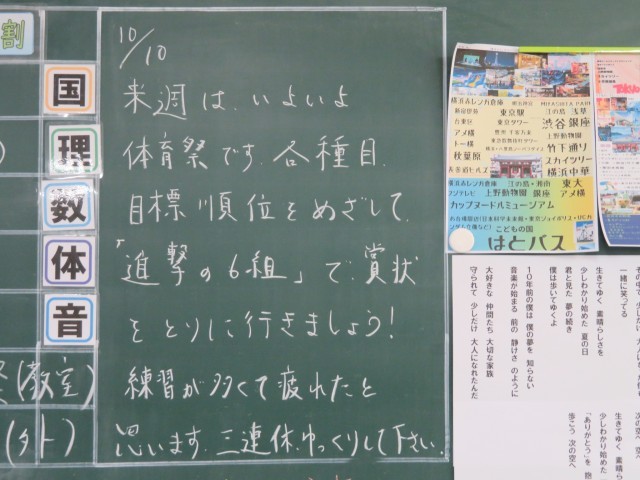 割
国
理
数
体
音
(教室)
(外)
10/10
来週は、いよいよ
体育祭です。各種目、
目標順位をめざして、
「進撃の6組」で、賞状
をとりに行きましょう!
練習が多くて疲れたと
思います。三連休、ゆっくりして下さい。
横浜赤レンガ倉庫
東京駅
江の島 浅草
東京タワー
渋谷 銀座
アメ横
上野動物園
竹下通り
秋葉原
スカイツリー
表参道ヒルズ
横浜中華
横浜赤レンガ倉庫 江の島・湘南 東大
フジテレビ 上野動物園 銀座 アメ横
カップヌードルミュージアム
こどもの国
はとバス
一緒に笑ってる
生きてゆく 素晴らしさを
少しわかり始めた 夏の日
君と見た 夢の続き
僕は歩いてゆくよ
10年前の僕は 僕の夢を 知らない
音楽が始まる 前の 静けさ のように
大好きな 仲間たち 大切な家族
守られて 少しだけ 大人になれたんだ
次の空へ
生きてゆく 素晴ら
少しわかり始めた
「ありがとう」を 抱
歩こう 次の空へ